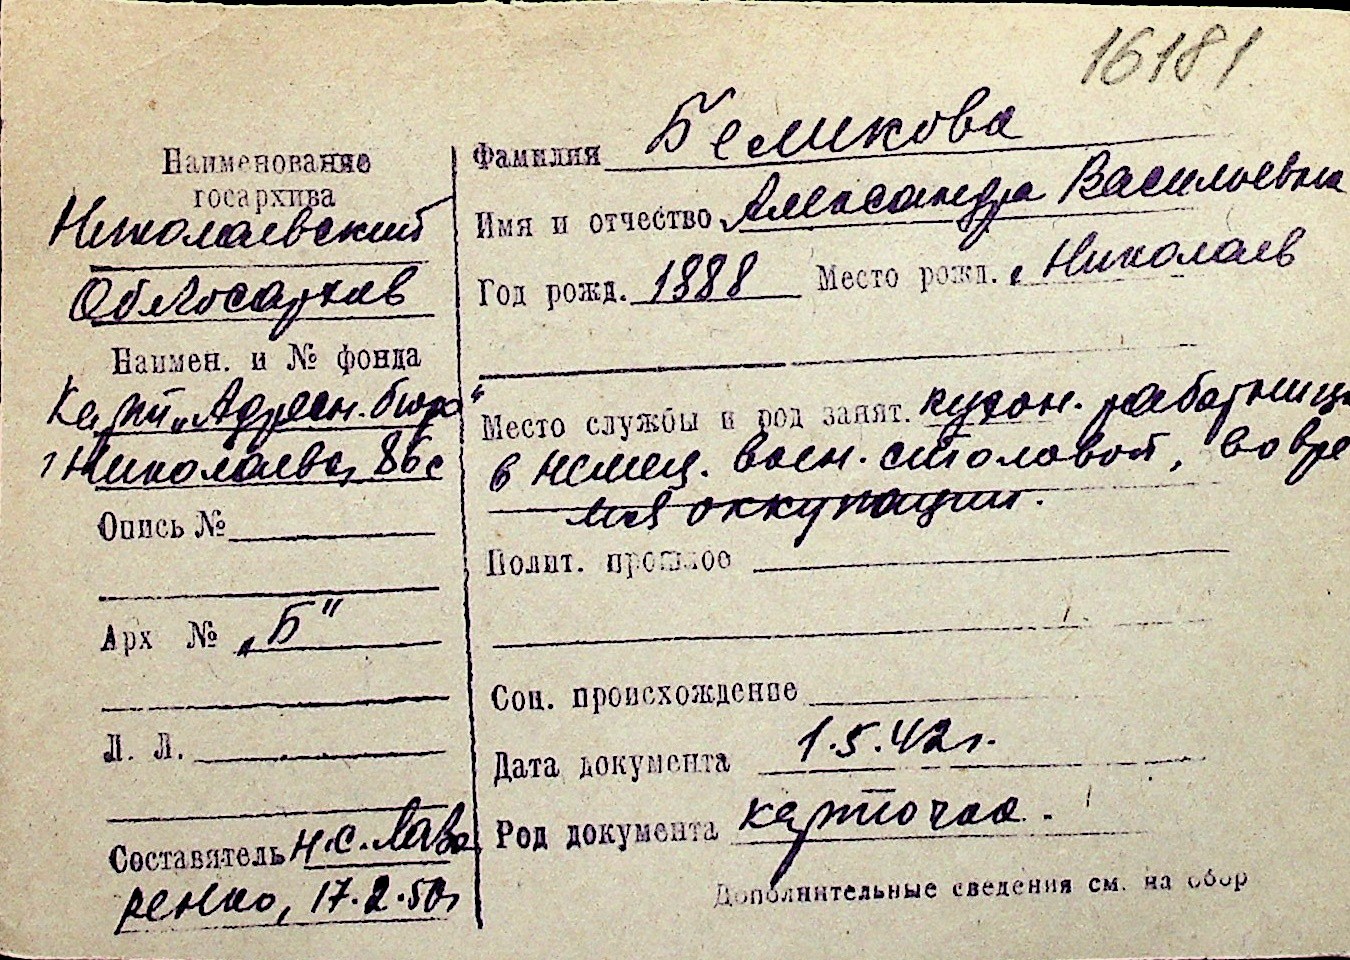 16181
Наименование
госархива
Николаевский
Облгосархив
Наимен. и № фонда
Карт. „Адресн. бюро“
г. Николаева, 86с
Опись №
Арх № „Б“
Л. Л.
Составитель Н.С. Лаве
ренко, 17.2.50г
Фамилия Беликова
Имя и отчество Александра Васильевна
Год рожд. 1888 Место рожд. г. Николаев
Место службы и род занят. кухон. работница
в немец. воен. столовой, во вре
мя оккупации.
Полит. прошлое
Соц. происхождение
Дата документа 1.5.42г.
Род документа карточка.
Дополнительные сведения см. на обор